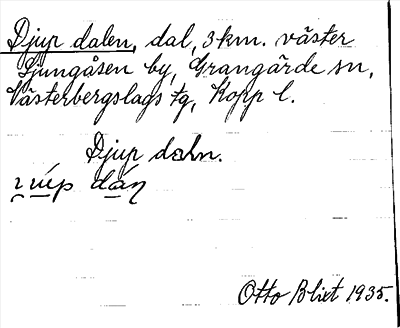 Djup dalen, dal, 3 km. väster
Ljungåsen by, Grangärde sn,
Västerbergslags tg, Kopp l.
Djup daln.
dán
Otto Blixt 1935.